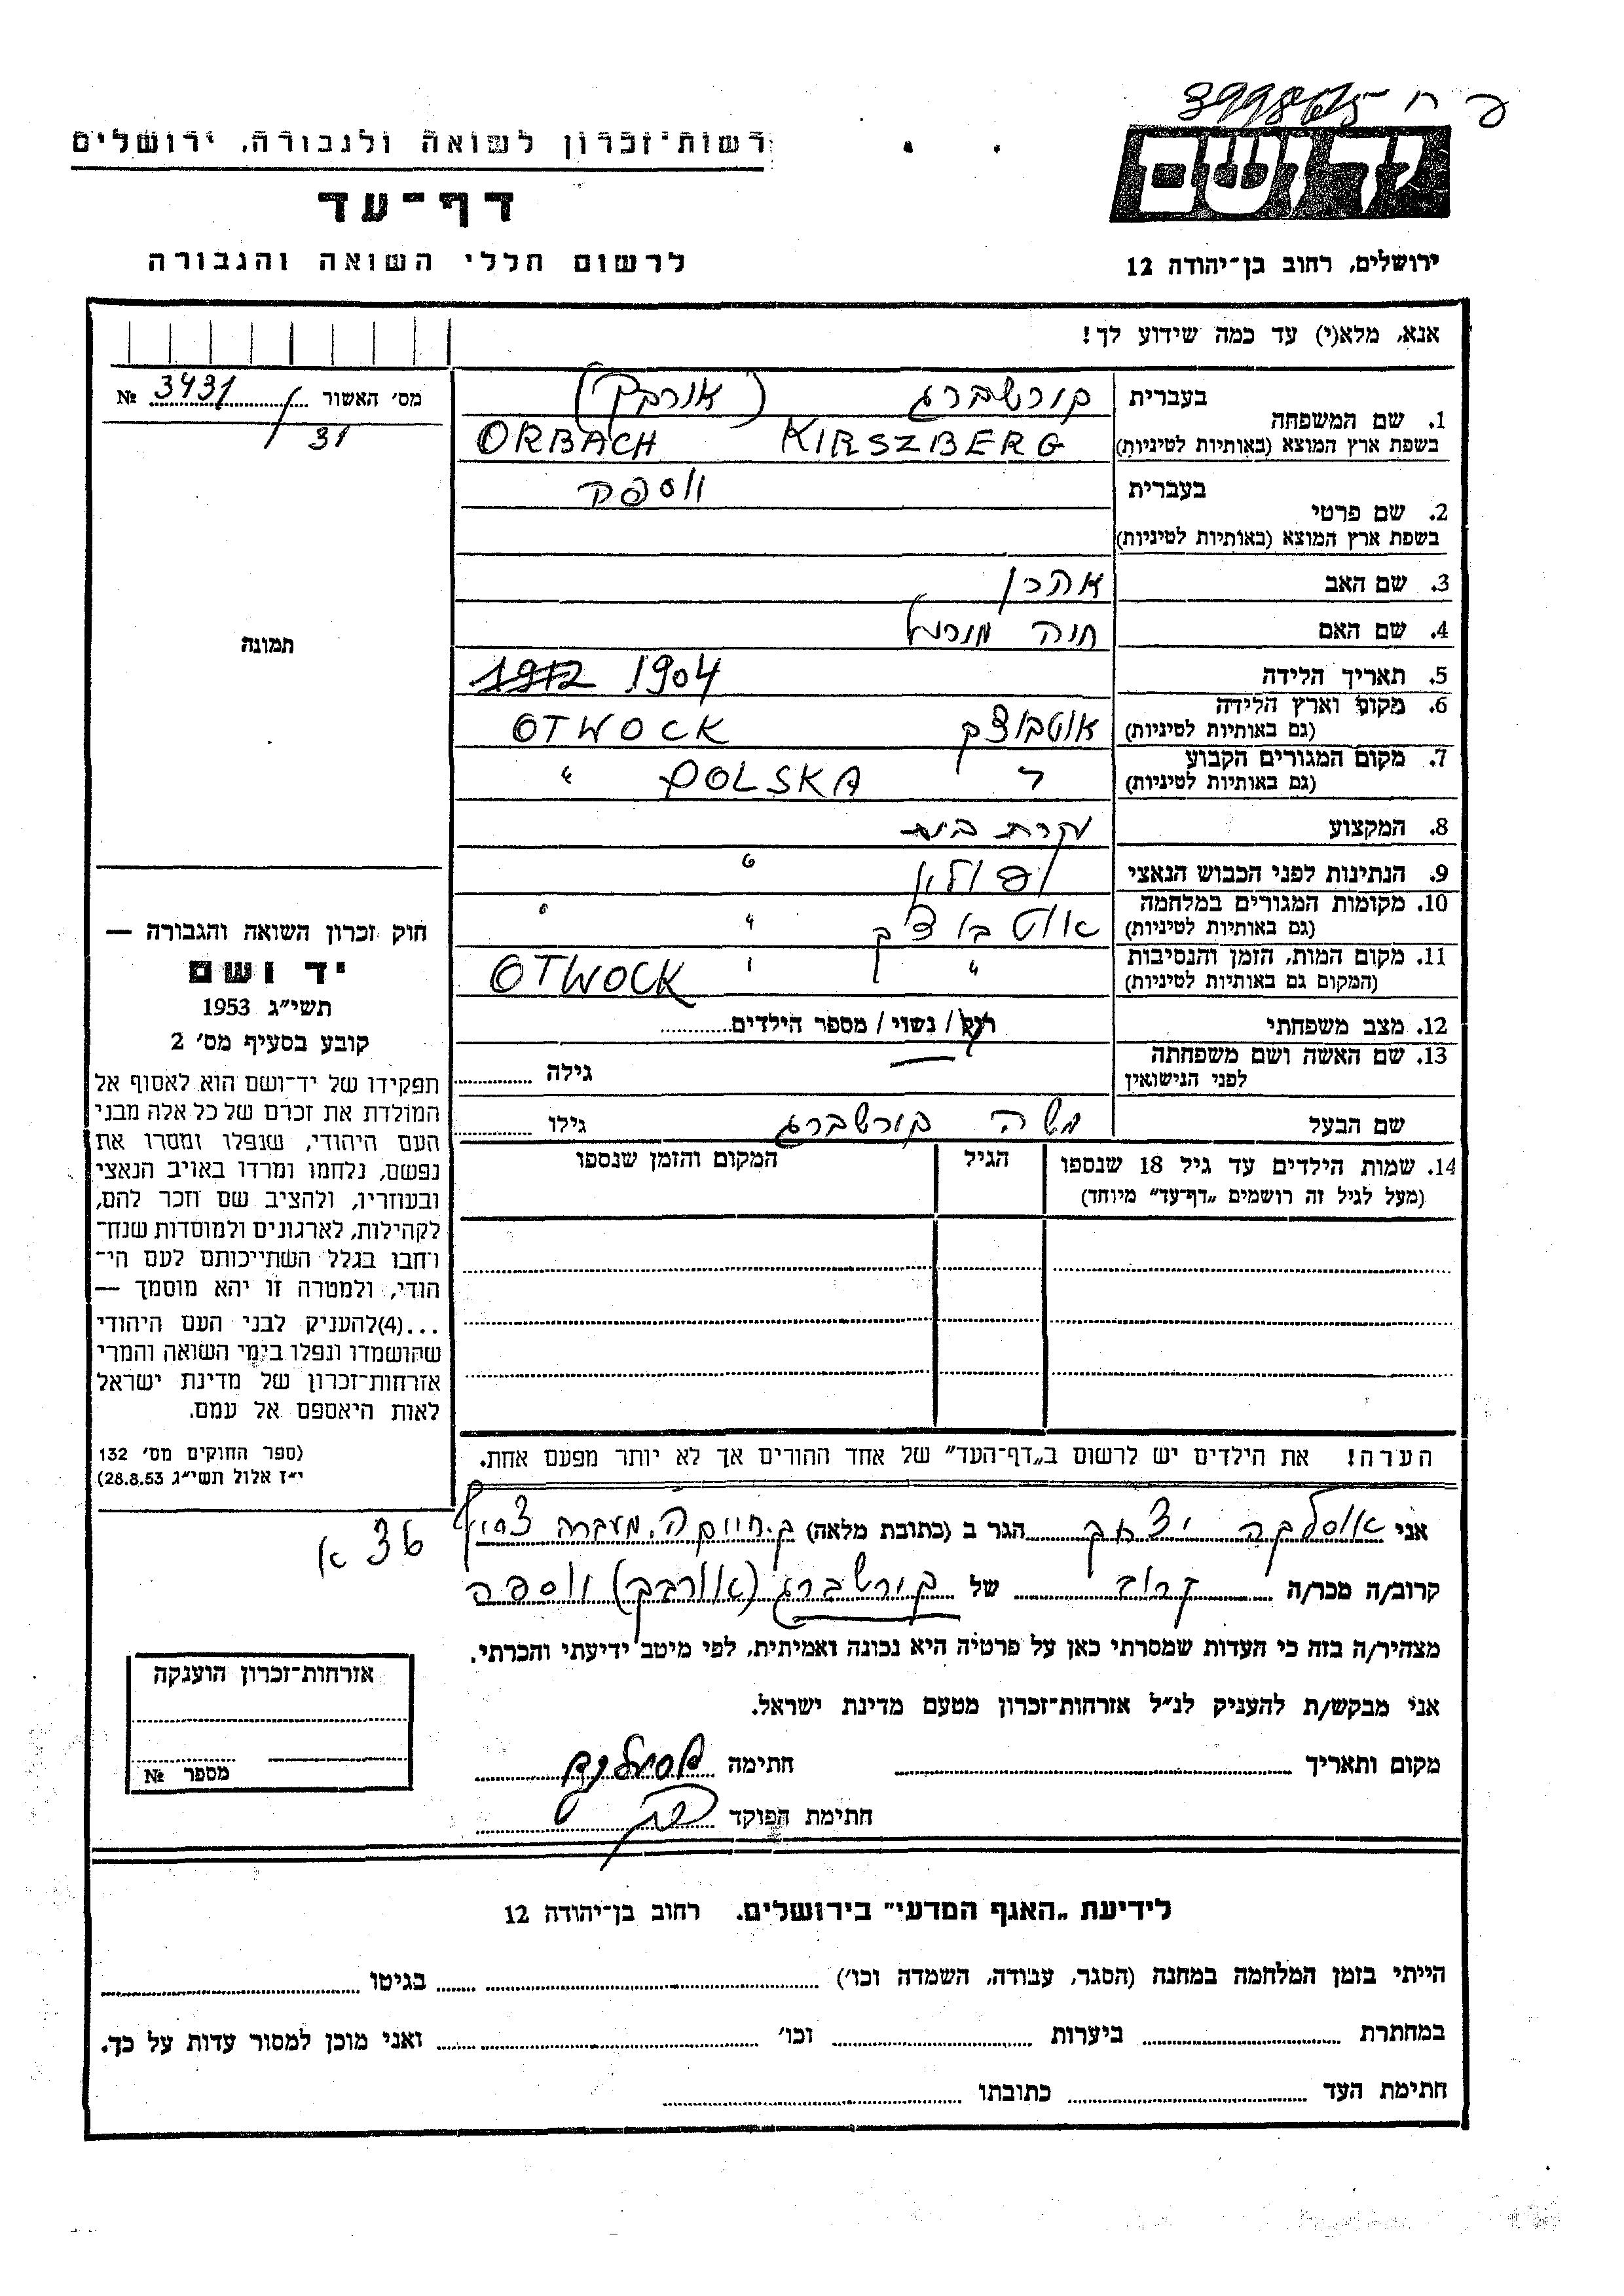 פ ח 399805
רשות־זכרון לשואה ולגבורה, ירושלים
ידושם
דף־עד
לרשום חללי השואה והגבורה
ירושלים, רחוב בן־יהודה 12
אנא, מלא(י) עד כמה שידוע לך!
מס׳ האשור № 3431/31
1. שם המשפחה בעברית קורשברג (אורבך)
בשפת ארץ המוצא (באותיות לטיניות) ORBACH KIRSZBERG
2. שם פרטי בעברית
בשפת ארץ המוצא (באותיות לטיניות)
3. שם האב אהרן
4. שם האם חוה
5. תאריך הלידה 1904 1912
6. מקום וארץ הלידה (גם באותיות לטיניות) אוטבוצק OTWOCK
7. מקום המגורים הקבוע (גם באותיות לטיניות) POLSKA "
8. המקצוע עקרת בית
9. הנתינות לפני הכבוש הנאצי פולין "
10. מקומות המגורים במלחמה (גם באותיות לטיניות) אוטבוצק " "
11. מקום המות, הזמן והנסיבות (המקום גם באותיות לטיניות) " " OTWOCK
12. מצב משפחתי רוק / נשוי / מספר הילדים
13. שם האשה ושם משפחתה לפני הנישואין גילה
שם הבעל משה קורשברג גילו
14. שמות הילדים עד גיל 18 שנספו
(מעל לגיל זה רושמים „דף־עד״ מיוחד)
הגיל
המקום והזמן שנספו
תמונה
חוק זכרון השואה והגבורה —
יד ושם
תשי״ג 1953
קובע בסעיף מס׳ 2
תפקידו של יד־ושם הוא לאסוף אל
המולדת את זכרם של כל אלה מבני
העם היהודי, שנפלו ומסרו את
נפשם, נלחמו ומרדו באויב הנאצי
ובעוזריו, ולהציב שם וזכר להם,
לקהילות, לארגונים ולמוסדות שנח־
רחבו בגלל השתייכותם לעם הי־
הודי, ולמטרה זו יהא מוסמך —
...(4)להעניק לבני העם היהודי
שהושמדו ונפלו בימי השואה והמרי
אזרחות־זכרון של מדינת ישראל
לאות היאספם אל עמם.
(ספר החוקים מס׳ 132
י״ז אלול תשי״ג 28.8.53)
הערה! את הילדים יש לרשום ב„דף־העד״ של אחד ההורים אך לא יותר מפעם אחת.
אני יצחק הגר ב (כתובת מלאה) ק. חיים ה. מעברה
קרוב/ה מכר/ה קרוב של קורשברג (אורבך)
מצהיר/ה בזה כי העדות שמסרתי כאן על פרטיה היא נכונה ואמיתית, לפי מיטב ידיעתי והכרתי.
אני מבקש/ת להעניק לנ״ל אזרחות־זכרון מטעם מדינת ישראל.
מקום ותאריך חתימה
חתימת הפוקד
אזרחות־זכרון הוענקה
מספר №
לידיעת „האגף המדעי״ בירושלים. רחוב בן־יהודה 12
הייתי בזמן המלחמה במחנה (הסגר, עבודה, השמדה וכו׳) בגיטו
במחתרת ביערות וכו׳ ואני מוכן למסור עדות על כך.
חתימת העד כתובתו